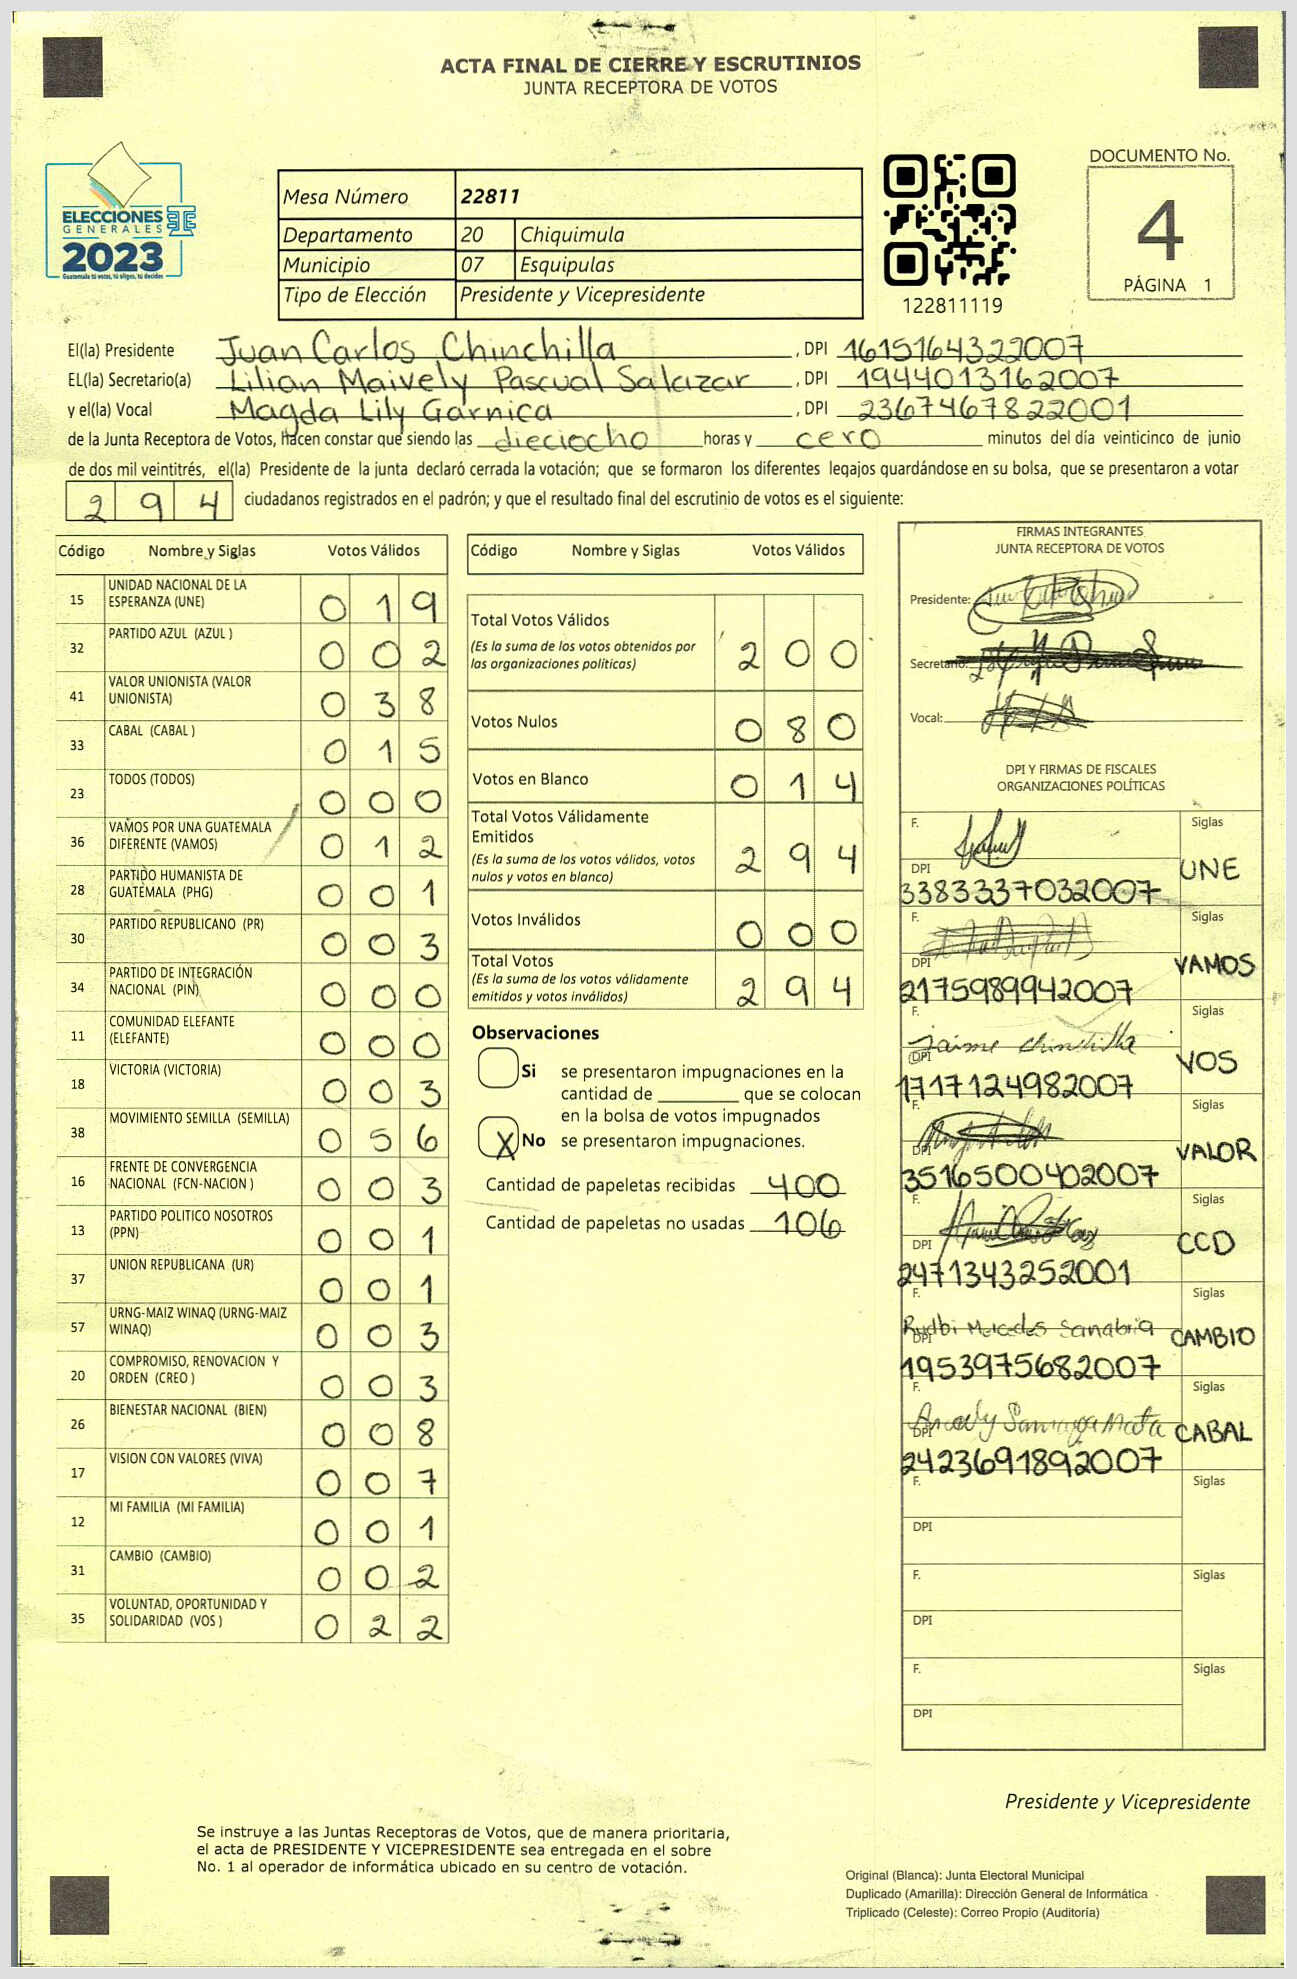 ACTA FINAL DE CIERRE Y ESCRUTINIOS
JUNTA RECEPTORA DE VOTOS
ELECCIONES
GENERALES
2023
Guatemala tú votas, tú eliges, tú decides
Mesa Número 22811
Departamento 20 Chiquimula
Municipio 07 Esquipulas
Tipo de Elección Presidente y Vicepresidente
122811119
DOCUMENTO No.
4
PÁGINA 1
El(la) Presidente Juan Carlos Chinchilla , DPI 1615164322007
EL(la) Secretario(a) Lilian Maively Pascual Salazar , DPI 1944013162007
y el(la) Vocal Magda Lily Garnica , DPI 2367467822001
de la Junta Receptora de Votos, hacen constar que siendo las dieciocho horas y cero minutos del día veinticinco de junio
de dos mil veintitrés, el(la) Presidente de la junta declaró cerrada la votación; que se formaron los diferentes legajos guardándose en su bolsa, que se presentaron a votar
294 ciudadanos registrados en el padrón; y que el resultado final del escrutinio de votos es el siguiente:
Código Nombre y Siglas Votos Válidos
15 UNIDAD NACIONAL DE LA ESPERANZA (UNE) 019
32 PARTIDO AZUL (AZUL ) 002
41 VALOR UNIONISTA (VALOR UNIONISTA) 038
33 CABAL (CABAL ) 015
23 TODOS (TODOS) 000
36 VAMOS POR UNA GUATEMALA DIFERENTE (VAMOS) 012
28 PARTIDO HUMANISTA DE GUATEMALA (PHG) 001
30 PARTIDO REPUBLICANO (PR) 003
34 PARTIDO DE INTEGRACIÓN NACIONAL (PIN) 000
11 COMUNIDAD ELEFANTE (ELEFANTE) 000
18 VICTORIA (VICTORIA) 003
38 MOVIMIENTO SEMILLA (SEMILLA) 056
16 FRENTE DE CONVERGENCIA NACIONAL (FCN-NACION ) 003
13 PARTIDO POLITICO NOSOTROS (PPN) 001
37 UNION REPUBLICANA (UR) 001
57 URNG-MAIZ WINAQ (URNG-MAIZ WINAQ) 003
20 COMPROMISO, RENOVACION Y ORDEN (CREO ) 003
26 BIENESTAR NACIONAL (BIEN) 008
17 VISION CON VALORES (VIVA) 007
12 MI FAMILIA (MI FAMILIA) 001
31 CAMBIO (CAMBIO) 002
35 VOLUNTAD, OPORTUNIDAD Y SOLIDARIDAD (VOS ) 022
Código Nombre y Siglas Votos Válidos
Total Votos Válidos 200
(Es la suma de los votos obtenidos por
las organizaciones políticas)
Votos Nulos 080
Votos en Blanco 014
Total Votos Válidamente
Emitidos 294
(Es la suma de los votos válidos, votos
nulos y votos en blanco)
Votos Inválidos 000
Total Votos 294
(Es la suma de los votos válidamente
emitidos y votos inválidos)
Observaciones
Si se presentaron impugnaciones en la
cantidad de ________ que se colocan
en la bolsa de votos impugnados
X No se presentaron impugnaciones.
Cantidad de papeletas recibidas 400
Cantidad de papeletas no usadas 106
FIRMAS INTEGRANTES
JUNTA RECEPTORA DE VOTOS
Presidente:
Secretario:
Vocal:
DPI Y FIRMAS DE FISCALES
ORGANIZACIONES POLÍTICAS
F. Siglas
DPI UNE
3383337032007
F. Siglas
DPI VAMOS
2175989942007
F. Siglas
Jaime Chinchilla
DPI VOS
1717124982007
F. Siglas
DPI VALOR
3516500402007
F. Siglas
DPI CCD
2471343252001
F. Siglas
Rudbi Mercedes Sanabria
DPI CAMBIO
1953975682007
F. Siglas
DPI CABAL
2423691892007
F. Siglas
DPI
F. Siglas
DPI
F. Siglas
DPI
Presidente y Vicepresidente
Se instruye a las Juntas Receptoras de Votos, que de manera prioritaria,
el acta de PRESIDENTE Y VICEPRESIDENTE sea entregada en el sobre
No. 1 al operador de informática ubicado en su centro de votación.
Original (Blanca): Junta Electoral Municipal
Duplicado (Amarilla): Dirección General de Informática
Triplicado (Celeste): Correo Propio (Auditoría)